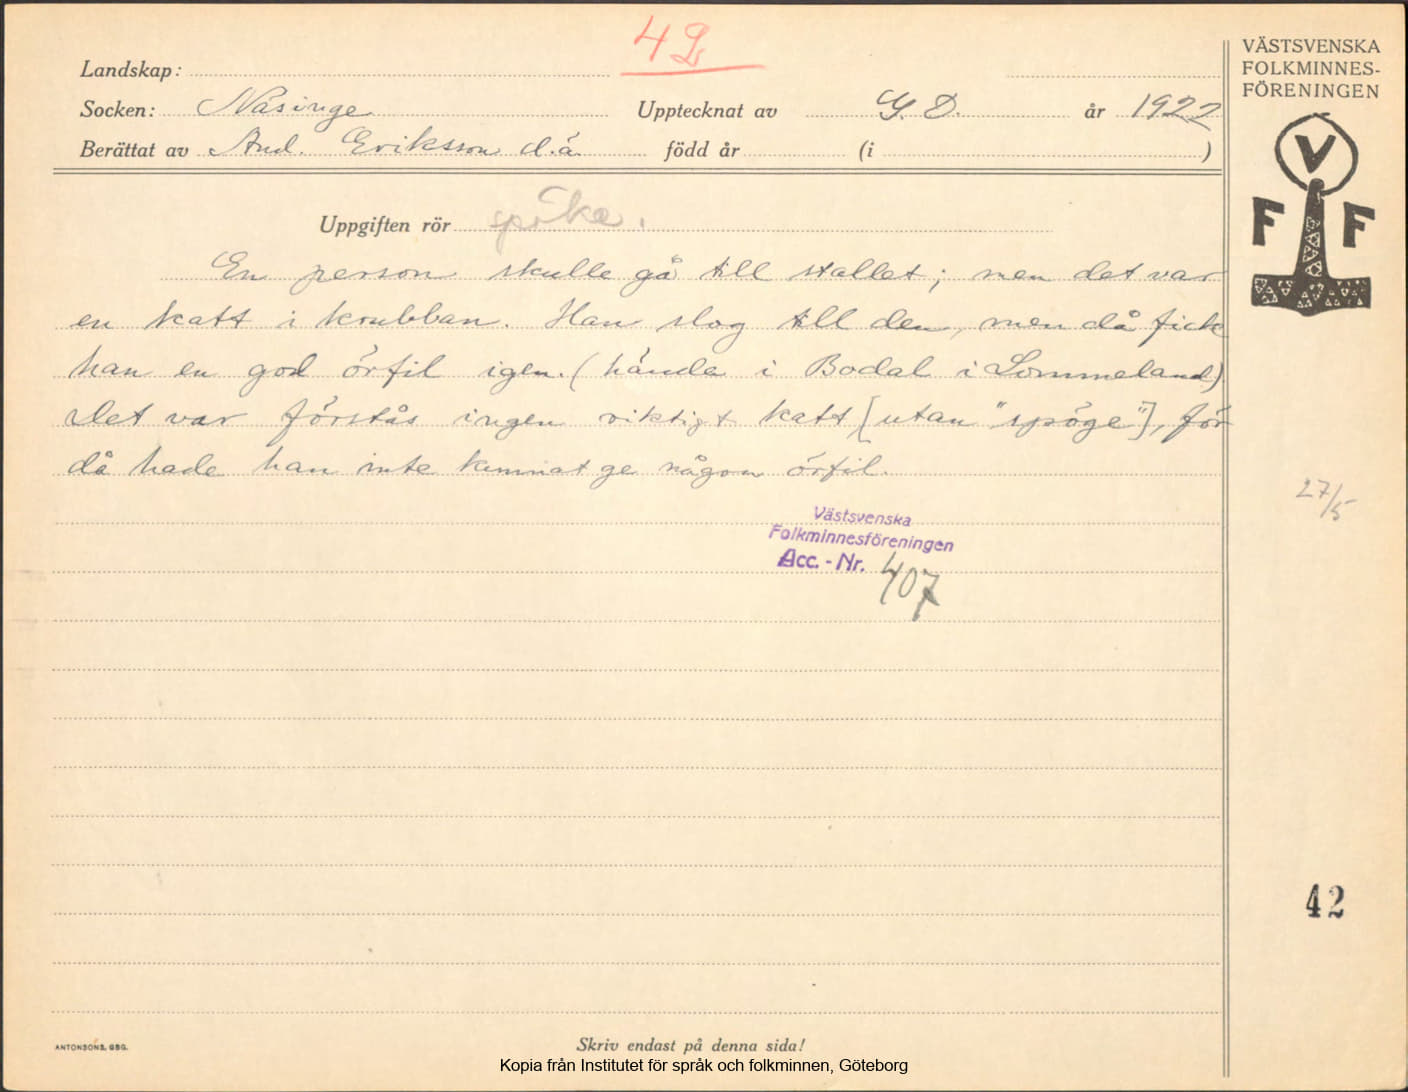 4 L
VÄSTSVENSKA
FOLKMINNES-
FÖRENINGEN
Landskap:
Socken: Näsinge Upptecknat av G. D. år 1922
Berättat av And. Eriksson d.ä. född år (i )
V
F F
Uppgiften rör spöke.
En person skulle gå till stallet; men det var
en katt i krubban. Han slog till den, men då fick
han en god örfil igen. (hände i Bodal i Lommeland)
Det var förstås ingen riktigt katt [utan "spöge"], för
då hade han inte kunnat ge någon örfil.
27/5
Västsvenska
Folkminnesföreningen
Acc. - Nr. 407
42
ANTONSONS, GBG.
Skriv endast på denna sida!
Kopia från Institutet för språk och folkminnen, Göteborg